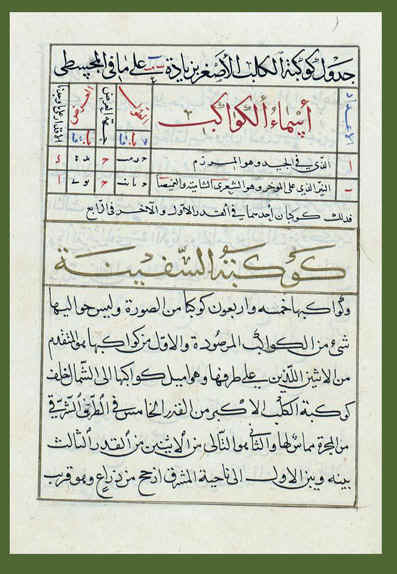 جدول كوكبة الكلب الأصغر بزيادة على ما في المجسطي
الاعداد
أسماء الكواكب
الطول
العرض
ا
الذي في الجيد وهو المرزم
ب
النير الذي على المؤخر وهو الشعرى الشامية والغميصا
فذلك كوكبان أحدهما في القدر الأول والآخر في الرابع
كوكبة السفينة
وكواكبها خمسه واربعون كوكبا من الصورة وليس حواليها
شئ من الكواكب المرصودة والاول من كواكبها هو المتقدم
من الاثنين اللذين على طرفها وهو اميل كواكبها الى الشمال خلف
كوكبة الكلب الاكبر من القدر الخامس في الطرف الشرقي
من المجرة مماس لها والثاني هو التالي من الاثنين من القدر الثالث
بينه وبين الاول الى ناحية المشرق ارجح من ذراع وهو قريب